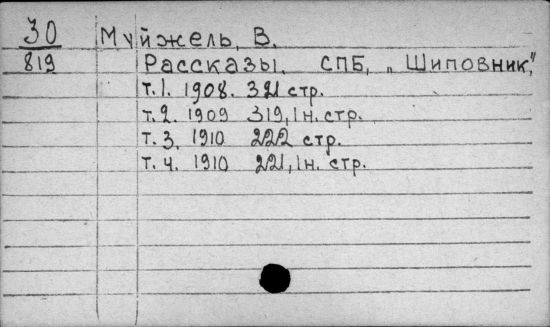 30 Муйжель, В.
819 Рассказы. СПБ, „Шиповник,"
т.1. 1908. 321 стр.
т.2. 1909 319,1н. стр.
т.3. 1910 222 стр.
т.4. 1910 221,1н. стр.